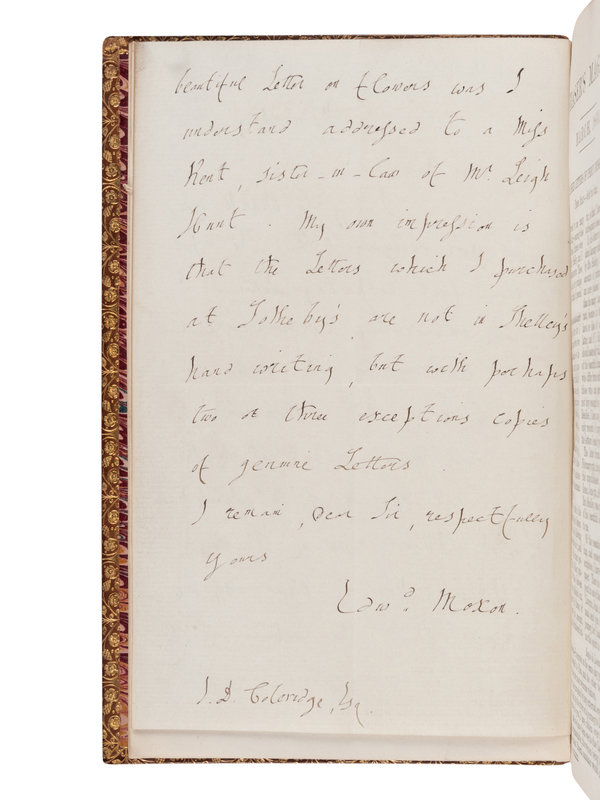 beautiful Letter on flowers was I
understand addressed to a Miss
Kent, sister-in-law of Mr. Leigh
Hunt. My own impression is
that the Letters which I purchased
at Sotheby's are not in Shelley's
hand writing, but with perhaps
two or three exceptions copies
of genuine Letters.
I remain, Dear Sir, respectfully
yours
Edwd. Moxon.
J. D. Coleridge, Esq.
MARCH,